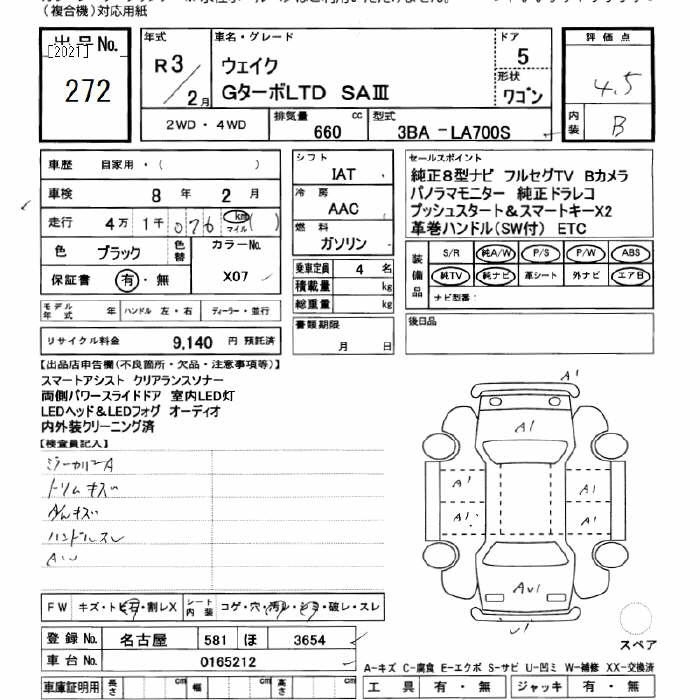 （複合機）対応用紙
出品No.
[2021]
272
年式
R3/2月
車名・グレード
ウェイク
GターボLTD SAⅢ
ドア
5
形状
ワゴン
評価点
4.5
内装
B
2WD・4WD
排気量
660
cc
型式
3BA -LA700S
車歴 自家用・( )
車検 8年 2月
走行 4万 1千 076 km マイル ( )
色 ブラック
色替
カラーNo.
X07
保証書 有・無
モデル年式 年
ハンドル 左・右
ディーラー・並行
リサイクル料金 9,140 円 預託済
シフト
IAT
冷房
AAC
燃料
ガソリン
乗車定員 4 名
積載量 kg
総重量 kg
書類期限
月 日
セールスポイント
純正8型ナビ フルセグTV Bカメラ
パノラマモニター 純正ドラレコ
プッシュスタート&スマートキーX2
革巻ハンドル(SW付) ETC
装備品
S/R 純A/W P/S P/W ABS
純TV 純ナビ 革シート 外ナビ エアB
ナビ型番：
後日品
【出品店申告欄(不良箇所・欠品・注意事項等)】
スマートアシスト クリアランスソナー
両側パワースライドドア 室内LED灯
LEDヘッド&LEDフォグ オーディオ
内外装クリーニング済
【検査員記入】
トリムキズ
ハンドルスレ
FW キズ・トビ石・割レX
シート内装 コゲ・穴・汚レ・シミ・破レ・スレ
登録No. 名古屋 581 ほ 3654
車台No. 0165212
車庫証明用 長さ cm 幅 cm 高さ cm
A1
A1
A1
A1
A1
A1
スペア
A-キズ C-腐食 E-エクボ S-サビ U-凹ミ W-補修 XX-交換済
工具 有・無
ジャッキ 有・無